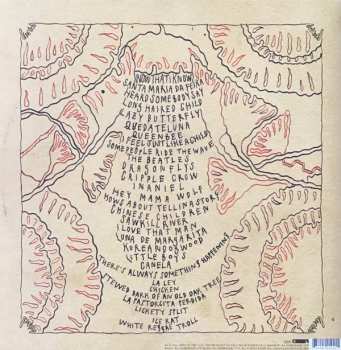 NOW THAT I KNOW
SANTA MARIA DA FEIRA
HEARD SOMEBODY SAY
LONG HAIRED CHILD
LAZY BUTTERFLY
QUEDATELUNA
QUEENBEE
I FEEL JUST LIKE A CHILD
SOME PEOPLE RIDE THE WAVE
THE BEATLES
DRAGONFLYS
CRIPPLE CROW
INANIEL
HEY MAMA WOLF
HOWS ABOUT TELLIN A STORY
CHINESE CHILDREN
SAWKILL RIVER
I LOVE THAT MAN
LUNA DE MARGARITA
KOREAN DOGWOOD
LITTLE BOYS
CANELA
THERE'S ALWAYS SOMETHING HAPPENING
LA LEY
CHICKEN
STEWED BARK OF AN OLD OAK TREE
LA PASTORCITA PERDIDA
LICKETY SPLIT
ICE RAT
WHITE REGGAE TROLL